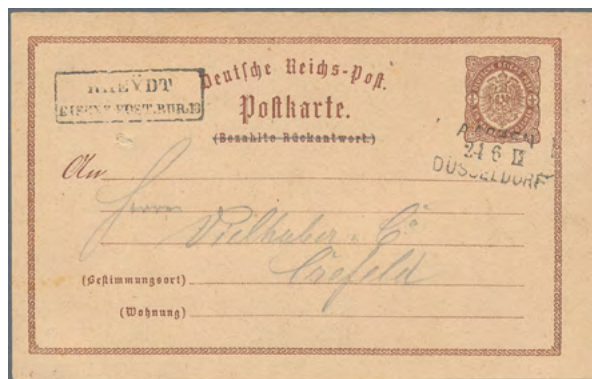 RHEYDT
EISENB. POST. BUR. 10
Deutsche Reichs-Post.
Postkarte.
(Bezahlte Rückantwort.)
AACHEN
24 6 II
DÜSSELDORF
An
Herrn
Vielhaber & Co
Crefeld
(Bestimmungsort)
(Wohnung)